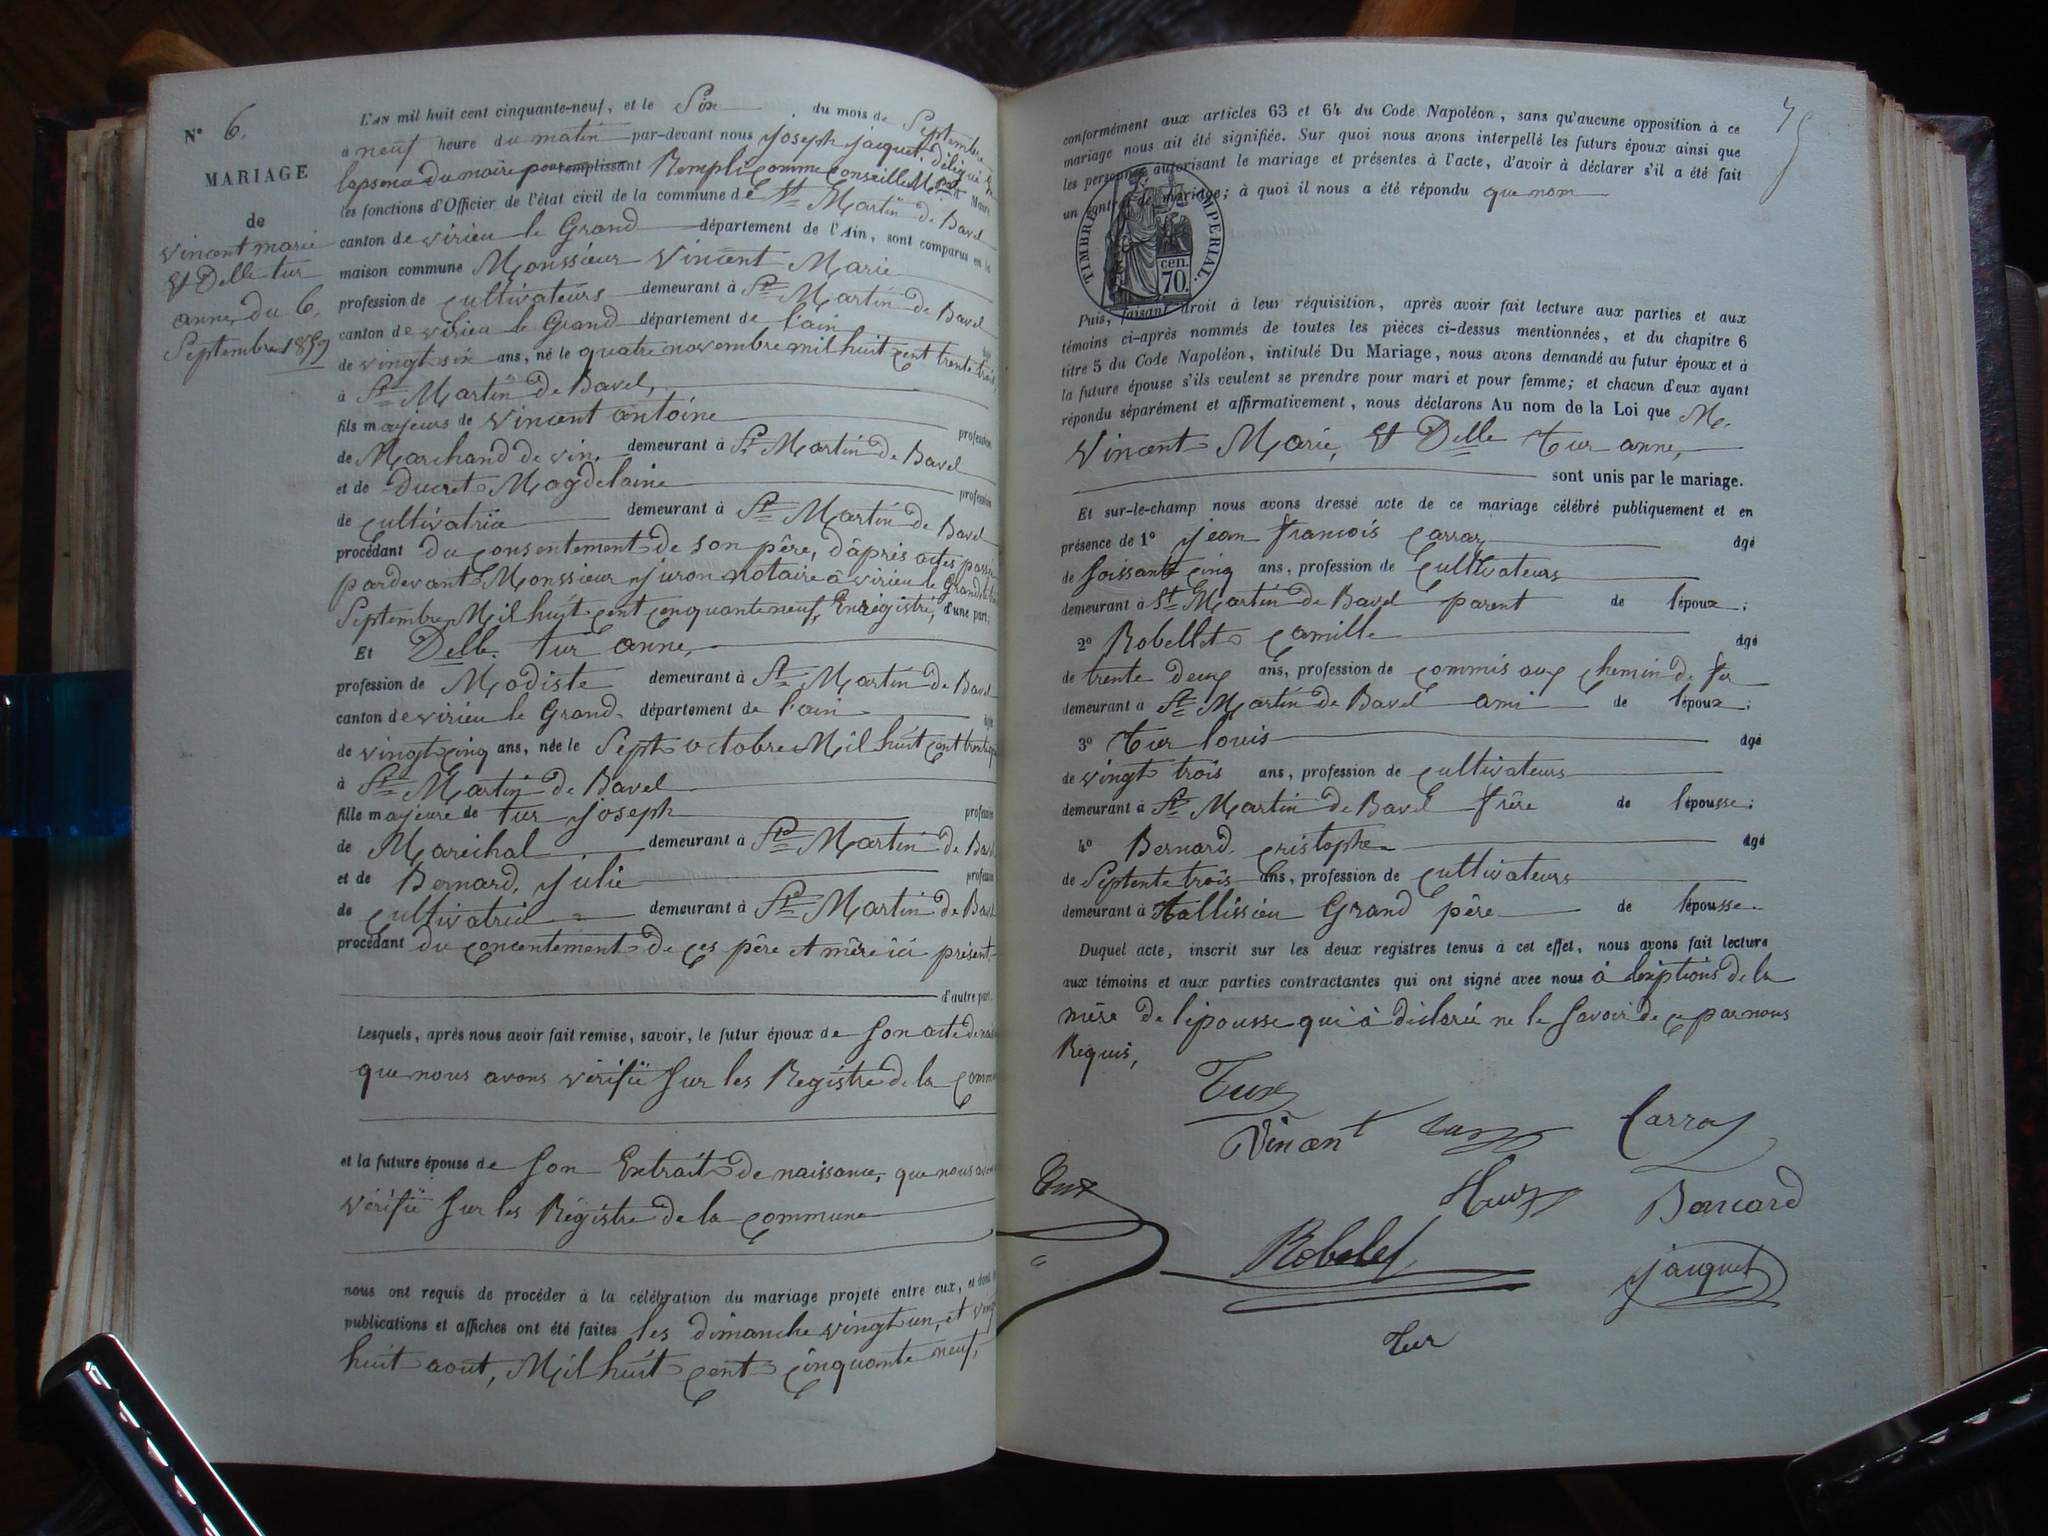 N° 6.
MARIAGE
de
Vincent marie
Et Delle tur
anne, du 6.
Septembre 1859
L'AN mil huit cent cinquante-neuf, et le Six du mois de Septembre
à neuf heure du matin par-devant nous joseph jacquet, délégué
l'apsence du maire pour remplissant Rempli comme Conseille
les fonctions d'Officier de l'état civil de la commune de St Martin de Bavel
canton de virieu le Grand département de l'Ain, sont comparus en la
maison commune Monssieur Vincent Marie
profession de Cultivateurs demeurant à St Martin de Bavel
canton de virieu le Grand département de l'ain âgé
de vingt six ans, né le quatre novembre mil huit cent trente trois
à St Martin De Bavel,
fils majeurs de Vincent antoine profession
de Marchand de vin, demeurant à St Martin de Bavel
et de Ducret Magdelaine profession
de Cultivatrice demeurant à St Martin de Bavel
procédant du consentement de son père, d'âpris actes passé
pardevant Monssieur juron notaire à virieu le Grand
Septembre Mil huit cent cenquante neuf, Enrégistré, d'une part;
Et Delle tur anne,
profession de Modiste demeurant à St Martin de Bavel
canton de virieu le Grand département de l'ain âgée
de vingt cinq ans, née le Sept octobre Mil huit cent trente
à St Martin de Bavel
fille majeure de tur joseph profession
de Marèchal demeurant à St Martin de Bavel
et de Bernard, julie profession
de Cultivatrice demeurant à St Martin de Bavel
procédant du concentement de ces père et mère ici présent
d'autre part.
Lesquels, après nous avoir fait remise, savoir, le futur époux de son acte de
que nous avons vérifiï sur les Registre de la
et la future épouse de son Extrait de naissance, que nous
vérifiï sur les Régistre de la Commune
nous ont requis de procéder à la célébration du mariage projeté entre eux, et dont
publications et affiches ont été faites les dimanche vingt un, et vingt
huit aout, Mil huit cent cinquante neuf,
75
conformément aux articles 63 et 64 du Code Napoléon, sans qu'aucune opposition à ce
mariage nous ait été signifiée. Sur quoi nous avons interpellé les futurs époux ainsi que
les personnes autorisant le mariage et présentes à l'acte, d'avoir à déclarer s'il a été fait
un contrat de mariage; à quoi il nous a été répondu que non
TIMBRE IMPERIAL.
70. cen.
Puis, faisant droit à leur réquisition, après avoir fait lecture aux parties et aux
témoins ci-après nommés de toutes les pièces ci-dessus mentionnées, et du chapitre 6
titre 5 du Code Napoléon, intitulé Du Mariage, nous avons demandé au futur époux et à
la future épouse s'ils veulent se prendre pour mari et pour femme; et chacun d'eux ayant
répondu séparément et affirmativement, nous déclarons Au nom de la Loi que M.
Vincent Marie, Et Delle tur anne,
sont unis par le mariage.
Et sur-le-champ nous avons dressé acte de ce mariage célébré publiquement et en
présence de 1° jean francois Carraz âgé
de Soissante cinq ans, profession de Cultivateurs
demeurant à St Martin de Bavel parent de l'époux;
2° Robellet Camille âgé
de trente deux ans, profession de commis aux chemin de fer
demeurant à St Martin de Bavel ami de l'époux;
3° tur louis âgé
de vingt trois ans, profession de cultivateurs
demeurant à St Martin de Bavel frère de l'épousse;
4° Bernard, cristophe âgé
de Septente trois ans, profession de cultivateurs
demeurant à Tallissieu Grand père de l'épousse.
Duquel acte, inscrit sur les deux registres tenus à cet effet, nous avons fait lecture
aux témoins et aux parties contractantes qui ont signé avec nous à léxiptions de la
mère de l'épousse qui à diclarée ne le savoir de ce par nous
Requis,
Tur
Vincent
Carraz
Bernard
Robelet
jacquet
Tur